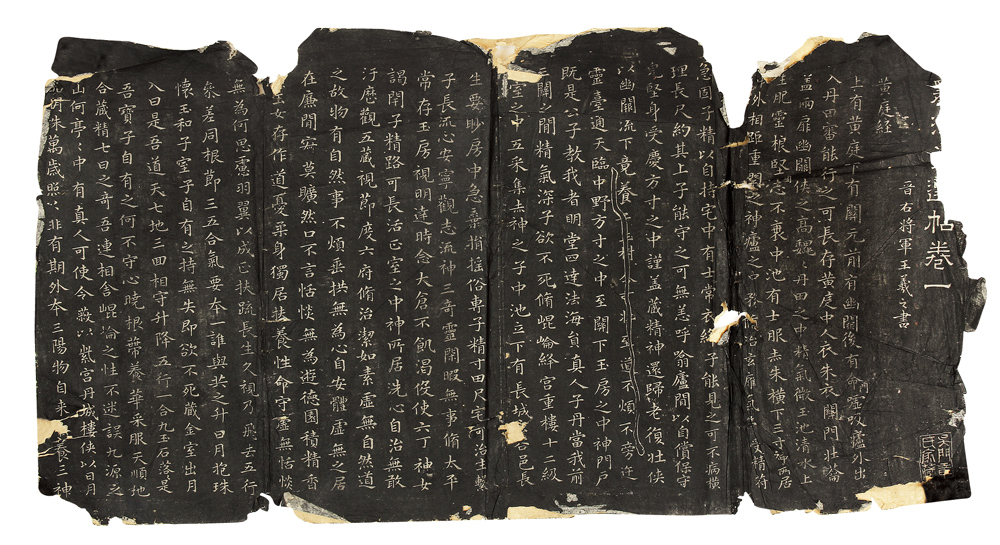 帖卷一
晉右將軍王羲之書
黃庭經
上有黃庭下有關元前有幽闕後有命門噓吸廬外出
入丹田審能行之可長存黃庭中人衣朱衣關門壯籥
蓋兩扉幽闕俠之高巍丹田之中精氣微玉池清水上
生肥靈根堅志不衰中池有士服赤朱橫下三寸神所居
外相距重閉之神廬之中務治玄雍氣受精符
急固子精以自持宅中有士常衣絳子能見之可不病橫
理長尺約其上子能守之可無恙呼翕廬間以自償保守
完堅身受慶方寸之中謹蓋藏精神還歸老復壯俠
以幽闕流下竟養壯至道不煩不旁迕
靈臺通天臨中野方寸之中至關下玉房之中神門戶
既是公子教我者明堂四達法海員真人子丹當我前
關之間精氣深子欲不死脩崐崘絳宮重樓十二級
室之中五采集赤神之子中池立下有長城谷邑長
生要眇房中急棄捐搖俗專子精寸田尺宅可治生繫
子長流心安寧觀志流神三奇靈閑暇無事脩太平
常存玉房視明達時念大倉不飢渴役使六丁神女
謁閉子精路可長活正室之中神所居洗心自治無敢
汙歷觀五藏視節度六府脩治潔如素虛無自然道
之故物有自然事不煩垂拱無為心自安體虛無之居
在廉間寂莫曠然口不言恬惔無為遊德園積精香
玉女存作道憂柔身獨居扶養性命守虛無恬惔
無為何思慮羽翼以成正扶疏長生久視乃飛去五行
參差同根節三五合氣要本一誰與共之升日月抱珠
懷玉和子室子自有之持無失即欲不死藏金室出月
入日是吾道天七地三回相守升降五行一合九玉石落是
吾寶子自有之何不守心曉根蔕養華采服天順地
合藏精七日之奇吾連相舍崐崘之性不迷誤九源之
山何亭々中有真人可使令蔽以紫宮丹城樓俠以日月
明珠萬歲照々非有期外本三陽物自來養三神